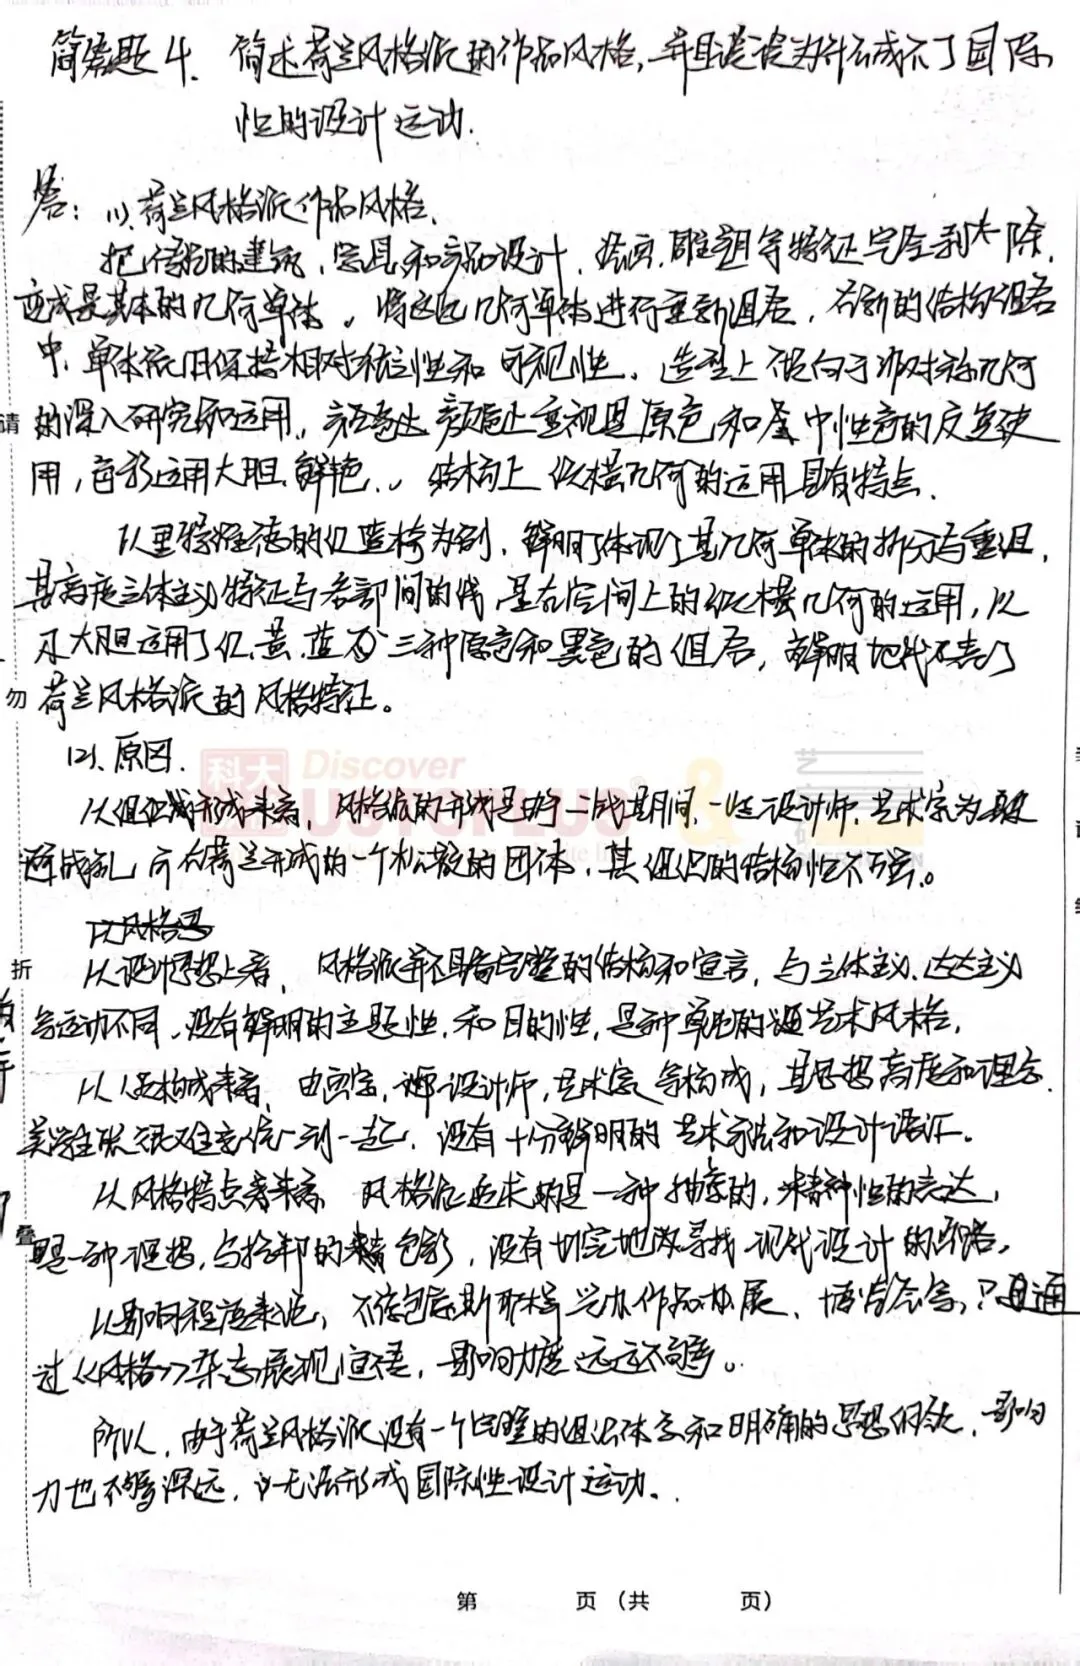 简答题4. 简述荷兰风格派的作品风格,并且谈谈为什么成不了国际
性的设计运动.
答: (1)、荷兰风格派作品风格.
把传统的建筑、家具和产品设计、绘画、雕塑等特征完全剥大除,
变成最基本的几何单体。将这些几何单体进行重新组合,在新的结构组合
中,单体依旧保持相对独立性和可视性。造型上倾向于非对称几何
的深入研究和运用。颜色上重视是原色和中性色的反复使
用,色彩运用大胆、鲜艳。结构上纵横几何的运用具有特点.
以里特维德的红蓝椅为例,鲜明了体现了其几何单体的拆分与重组,
其高度立体主义特征与各部间的线,是在空间上的纵横几何的运用,以
及大胆运用了红、黄、蓝三种原色和黑色的组合,鲜明地代表了
荷兰风格派的风格特征。
(2)、原因.
从组织形成来看,风格派的形成是由于一战其间,一些设计师、艺术家为
避战乱而在荷兰形成的一个松散的团体,其组织的结构性不强。
以风格
从设计思想上看,风格派并不具备完整的结构和宣言,与立体主义、达达主义
等运动不同,没有鲜明的主题性,和目的性,是种单纯的艺术风格,
从人员构成来看,由画家、设计师,艺术家等构成,其思想高度和理念,
美学主张很难完全统一到一起,没有十分鲜明的艺术宗法和设计语汇。
从风格特点来看 风格派追求的是一种抽象的,精神性的表达,
一种理想,与色彩,没有切实地寻找现代设计的
从影响程度来说,不像包豪斯那样兴办作品协展、博览会等,只通
过《风格》杂志展现宣传,影响力度远远不够。
所以,由于荷兰风格派没有一个完整的组织体系和明确的思想纲领,影响
力也不够深远,无法形成国际性设计运动.
请
勿
折
叠
科大
Discover
USTCPLUS
&
艺
研
第 页（共 页）